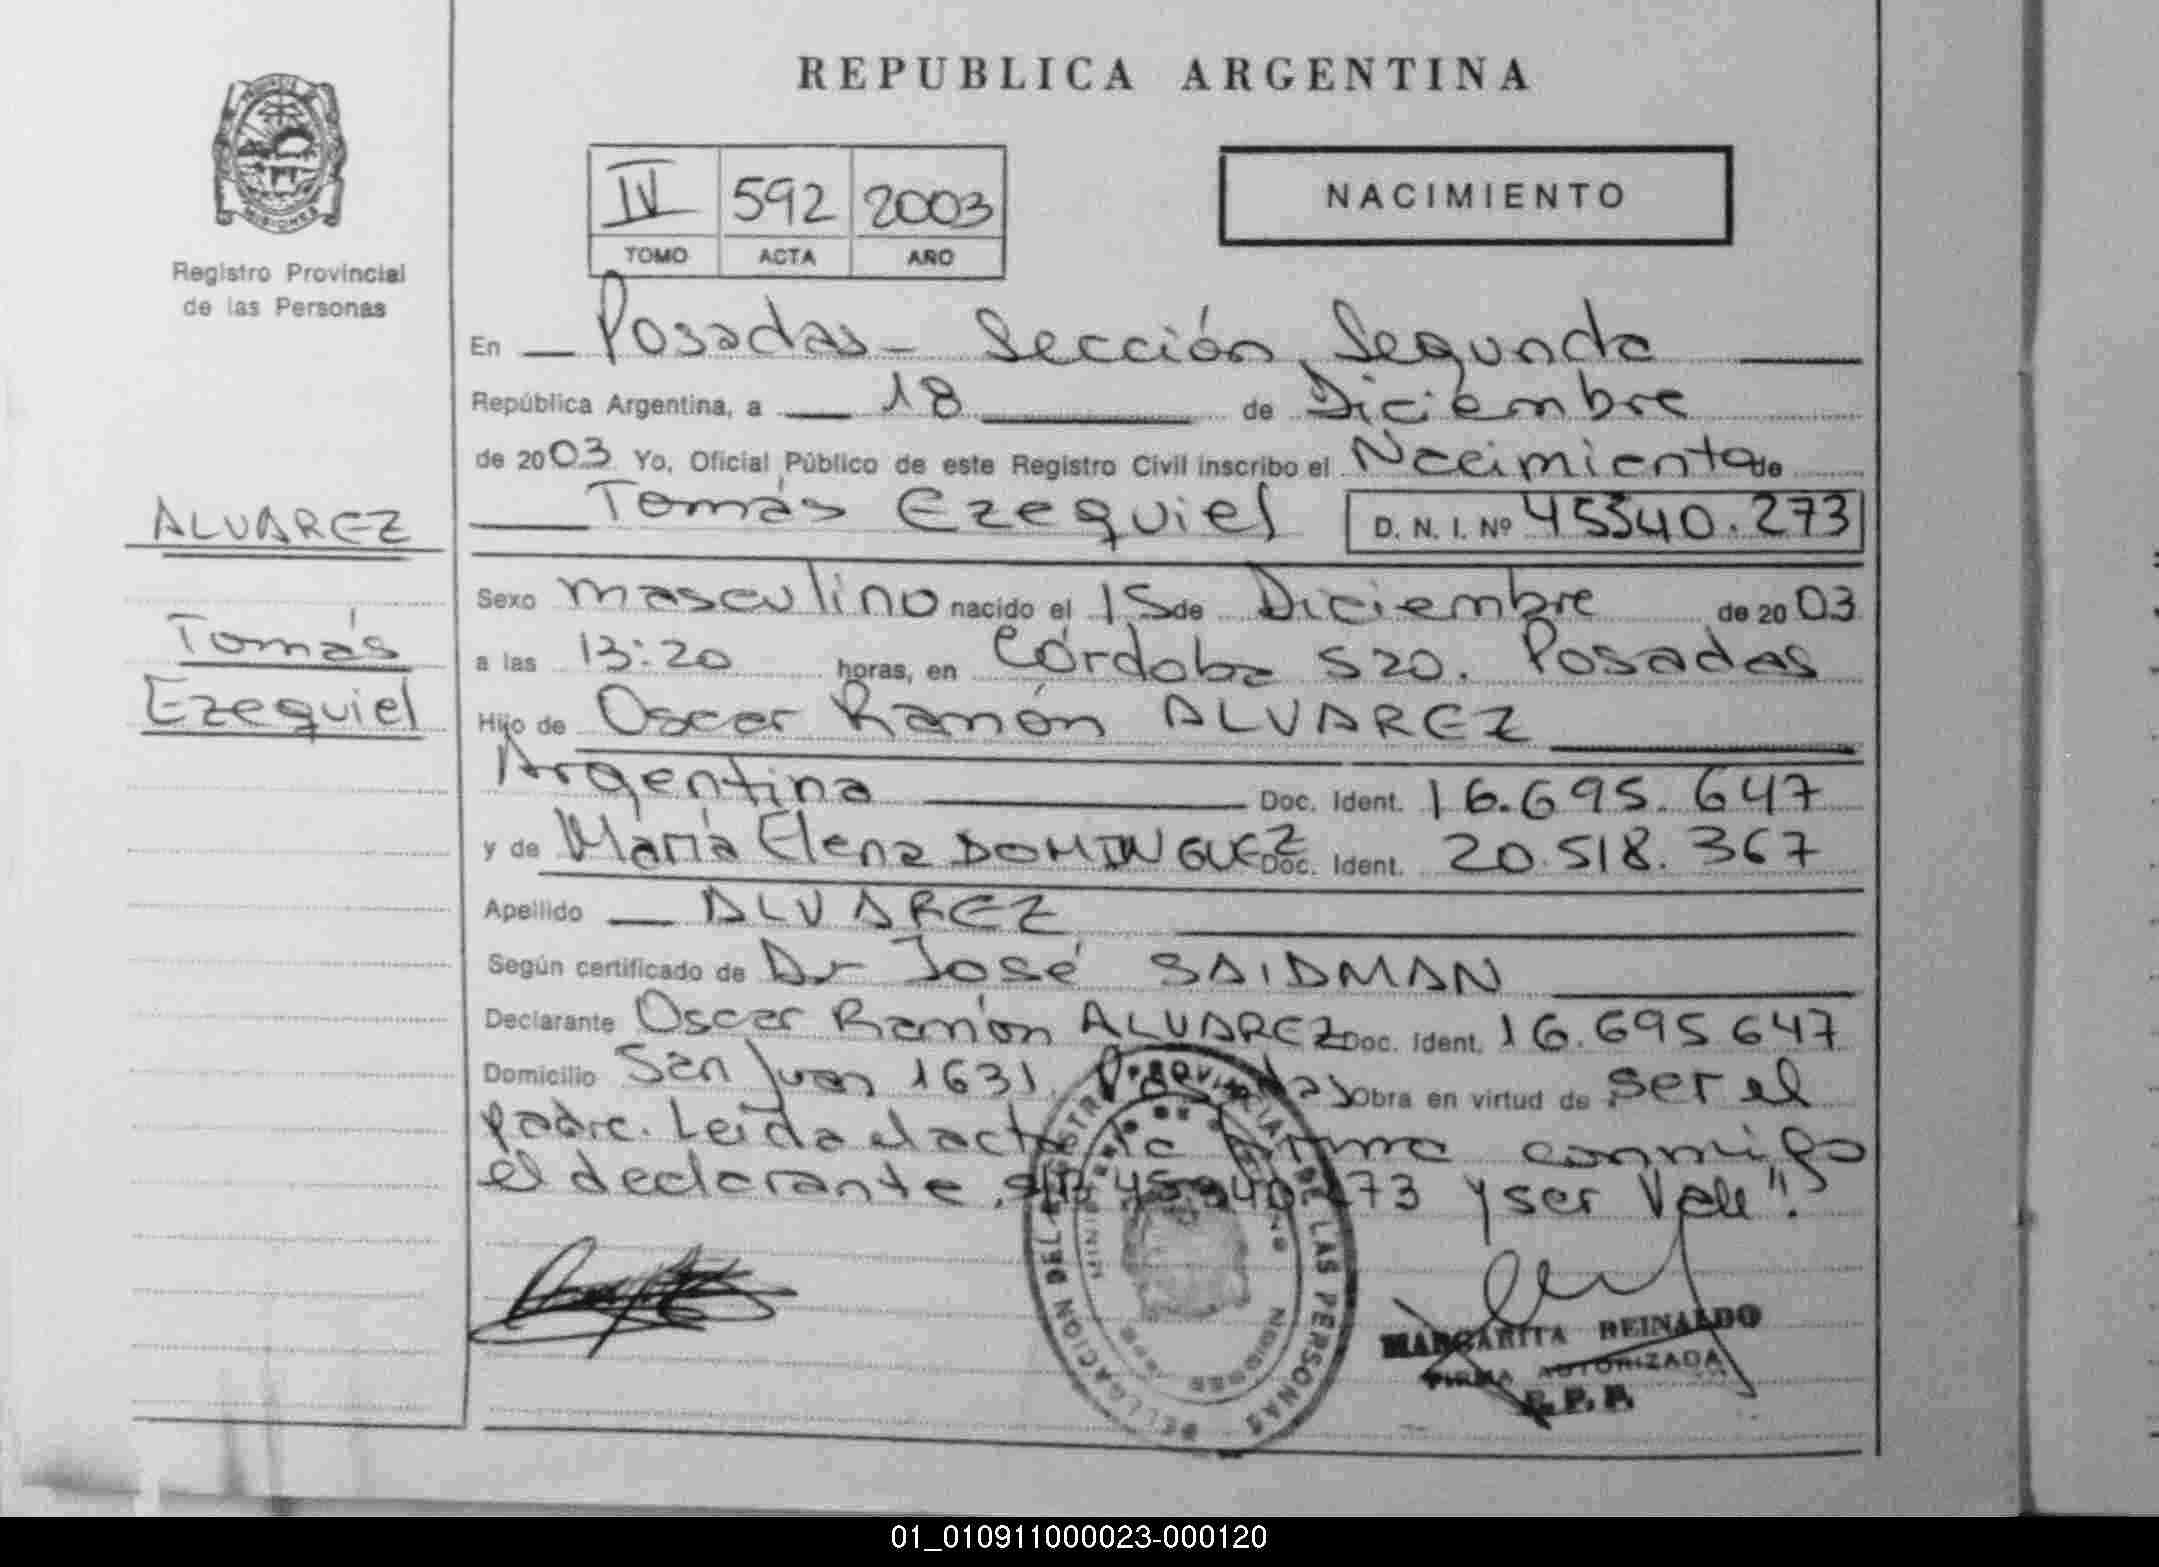 REPUBLICA ARGENTINA
IV 592 2003
TOMO ACTA AÑO
NACIMIENTO
PROVINCIA DE
MISIONES
Registro Provincial
de las Personas
ALVAREZ
Tomás
Ezequiel
En Posadas - Sección Segunda
República Argentina, a 18 de Diciembre
de 2003 Yo, Oficial Público de este Registro Civil inscribo el Nacimiento de
Tomás Ezequiel D. N. I. Nº 45340.273
Sexo masculino nacido el 15 de Diciembre de 2003
a las 13:20 horas, en Córdoba 520. Posadas
Hijo de Oscar Ramón ALVAREZ
Argentina Doc. Ident. 16.695.647
y de María Elena DOMINGUEZ Doc. Ident. 20.518.367
Apellido ALVAREZ
Según certificado de Dr José SAIDMAN
Declarante Oscar Ramón ALVAREZ Doc. Ident. 16.695 647
Domicilio San Juan 1631. Posadas Obra en virtud de ser el
padre. Leída el acta la firma conmigo
el declarante. 273 y ser Vale".
DELEGACION DEL REGISTRO PROVINCIAL DE LAS PERSONAS
MISIONES
MARGARITA REINALDO
FIRMA AUTORIZADA
R. P. P.
01_010911000023-000120